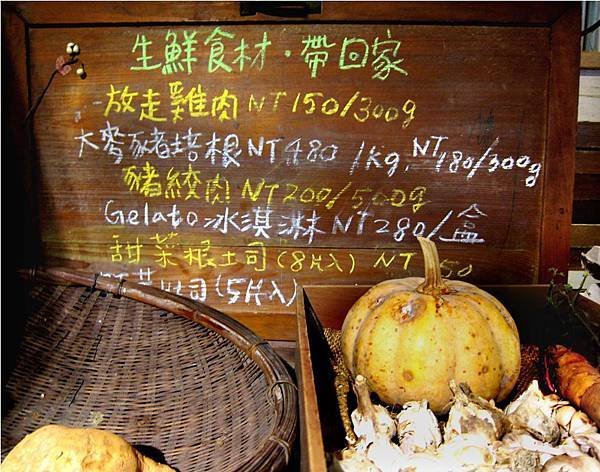 生鮮食材·帶回家
放走雞肉 NT150/300g
大麥豬培根NT480/Kg. NT180/300g
豬絞肉 NT200/500g
Gelato冰淇淋NT280/盒
甜菜根土司(8片入) NT
土司(5片入)